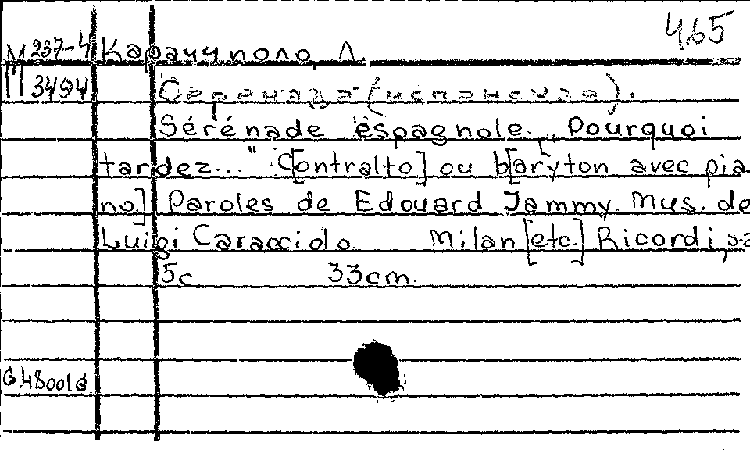 465
М 237-4 Карачиоло, Л.
3494 Серенада (испанская).
Sérénade espagnole. „Pourquoi
tardez..." C[ontralto] ou b[aryton avec pia
no] Paroles de Edouard Jammy. Mus. de
Luigi Caracciolo. Milan [etc.] Ricordi,
5c. 33cm.